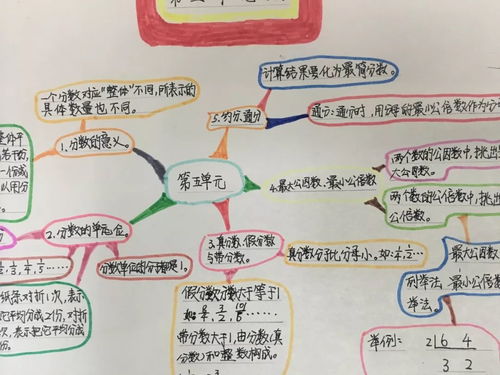 计算结果要化为最简分数。
一个分数对应“整体”不同,所表示的
具体数量也不同。
5.约分、通分
通分:通分时,用分母的最小公倍数作为分
1.分数的意义。
第五单元
4.最大公因数、最小公倍数
两个数的公因数中,挑出
大公因数。
两个数的公倍数中,挑出
公倍数。
2.分数的单位。
分数单位的分子都是1。
3.真分数、假分数
与带分数。
真分数分子比分母小。如:
假分数分数大于等于1
带分数大于1,由分数(真
分数)和整数构成。
最大公因数
列举法、最小公倍数
举法。
举例: 2 6 4
3 2
纸条对折1次,表示
把它平均分成2份,对折
次,表示把它平均分成
份。